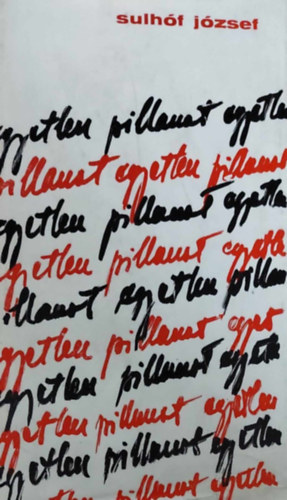 sulhóf józsef
egyetlen pillanat egyetlen
pillanat egyetlen pillanat
egyetlen pillanat egyetlen
egyetlen pillanat egyetle
illanat egyetlen pillan
egyetlen pillanat egyet
egyetlen pillanat egyetle
egyetlen pillanat egyetlen
egyetlen pillanat egyetlen
etlen pillanat egyetlen